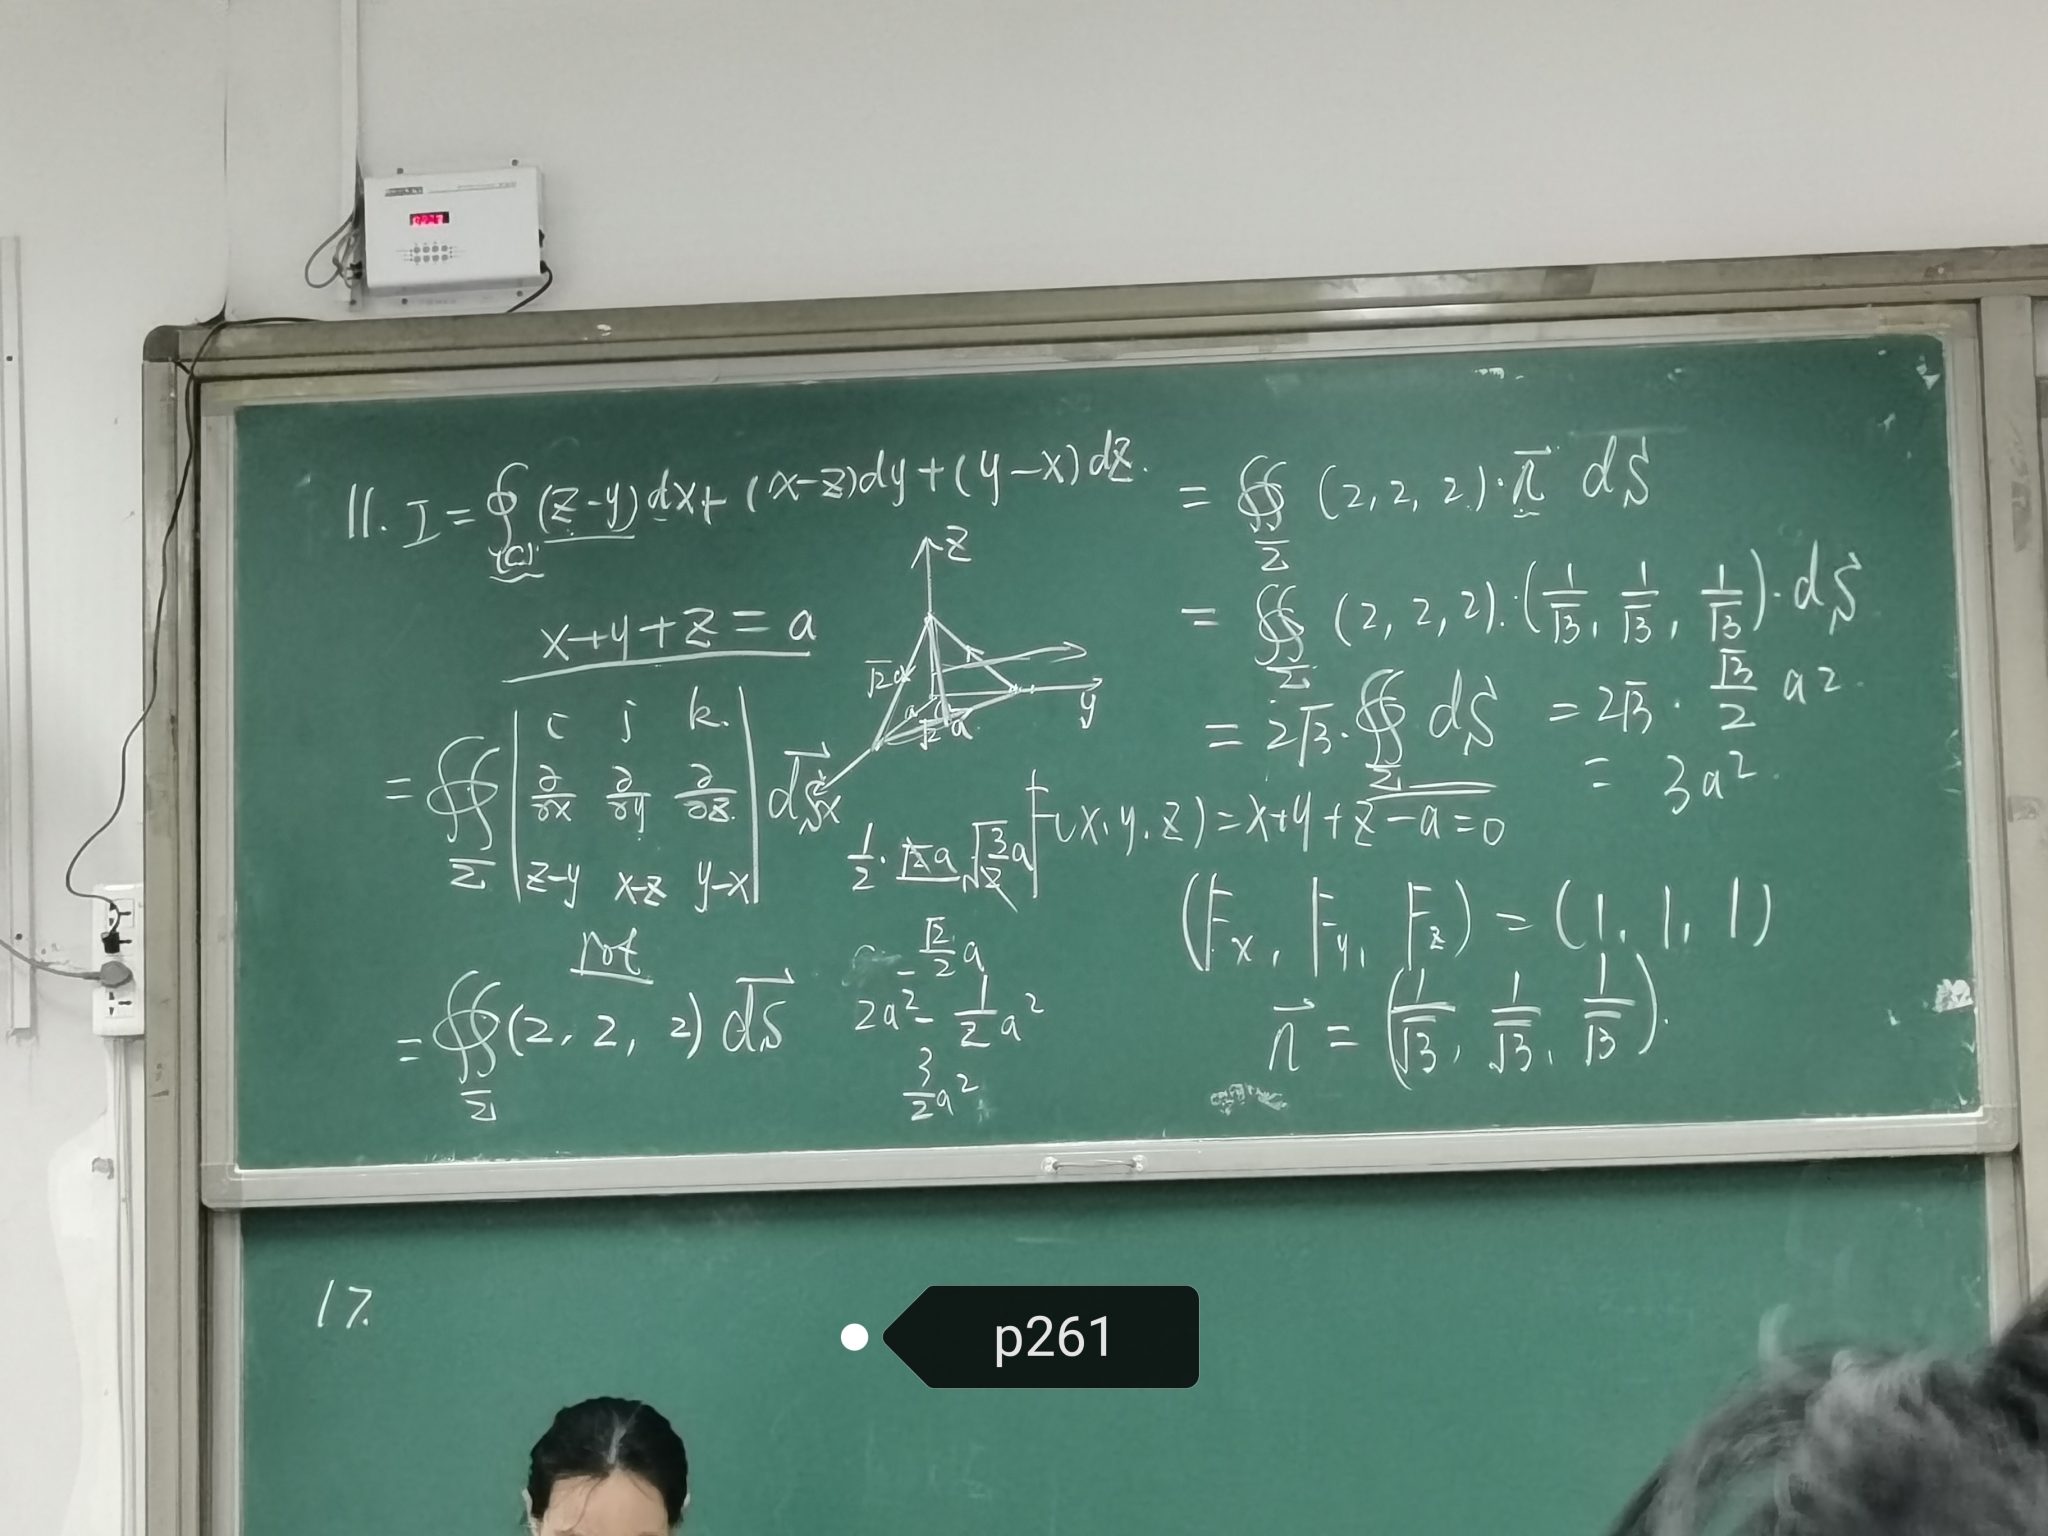 11. I = ∮(C) (z-y)dx+(x-z)dy+(y-x)dz.
x+y+z=a
z
y
x
√2a
a
√2 a
= ∯Σ | i j k. ; ∂/∂x ∂/∂y ∂/∂z. ; z-y x-z y-x | dS⃗
rot
= ∯Σ (2, 2, 2) dS⃗
1/2 · √2a · √(3/2)a
√2/2 a
2a² - 1/2 a²
3/2 a²
= ∯Σ (2, 2, 2)·n⃗ dS
= ∯Σ (2, 2, 2)·(1/√3, 1/√3, 1/√3)·dS
= 2√3·∯Σ dS = 2√3 · √3/2 a².
= 3a².
F(x,y,z)=x+y+z-a=0
(Fx, Fy, Fz) = (1, 1, 1)
n⃗ = (1/√3, 1/√3, 1/√3).
17.
p261